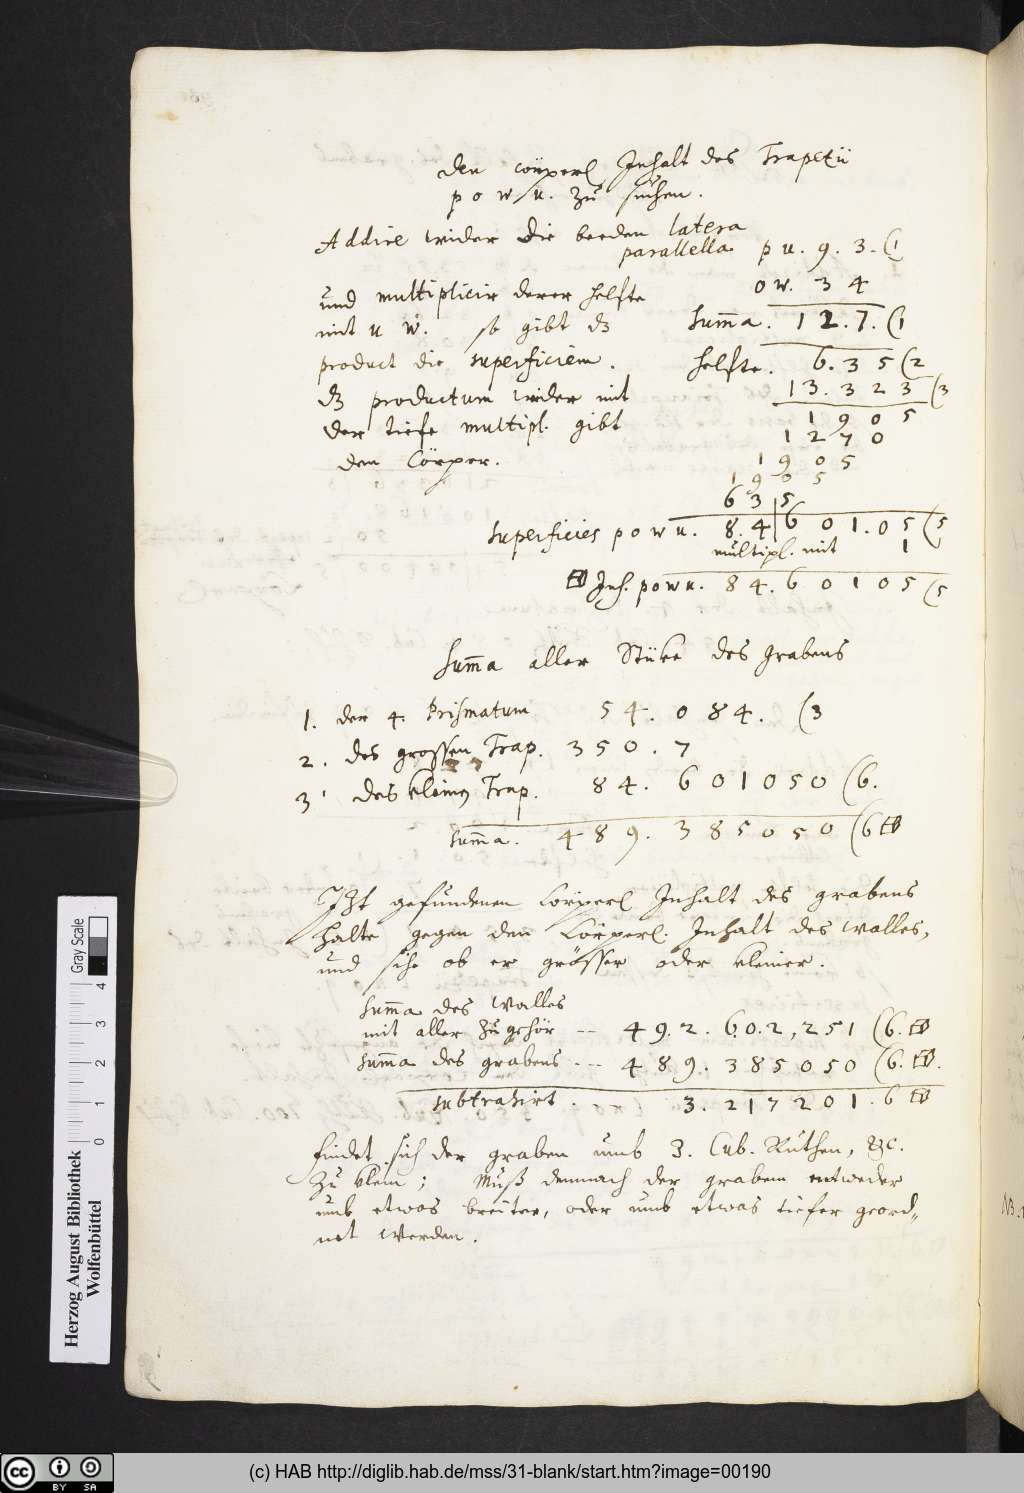 den cörperl Inhalt des Trapetii
p o w u. zu suchen.
Addire wider die beeden latera
parallella p u. 9. 3. (1
und multiplicir derer helfte o w. 3 4
mit u w. so gibt dz Sum̄a. 1 2. 7. (1
product die superficiem. helfte. 6. 3 5 (2
dz productum wider mit 1 3. 3 2 3 (3
der tiefe multipl. gibt 1 9 0 5
1 2 7 0
den Cörper. 1 9 0 5
1 9 0 5
6 3 5
superficies p o w u. 8. 4 | 6 0 1. 0 5 (5
multipl. mit 1
Inh. p o w u. 8 4. 6 0 1 0 5 (5
Sum̄a aller Stüke des grabens
1. der 4. Prismatum 5 4. 0 8 4. (3
2. des grossen Trap. 3 5 0. 7
3. des kleinen Trap. 8 4. 6 0 1 0 5 0 (6.
Sum̄a. 4 8 9. 3 8 5 0 5 0 (6
Izt gefundenen Cörperl Inhalt des grabens
halte gegen den Cörperl. Inhalt des walles,
und sihe ob er grösser oder kleiner.
Sum̄a des Walles
mit aller Zugehör -- 4 9 2. 6 0 2, 2 5 1 (6.
Sum̄a des grabens --- 4 8 9. 3 8 5 0 5 0 (6.
subtrahirt. - 3. 2 1 7 2 0 1. 6
findet sich der graben umb 3. Cub. Ruthen, &c.
zu klein; Muß demnach der graben entweder
umb etwas breiter, oder umb etwas tiefer geord„
net werden.
NB.
Herzog August Bibliothek
Wolfenbüttel
Gray Scale
0 1 2 3 4
cc BY SA
(c) HAB http://diglib.hab.de/mss/31-blank/start.htm?image=00190